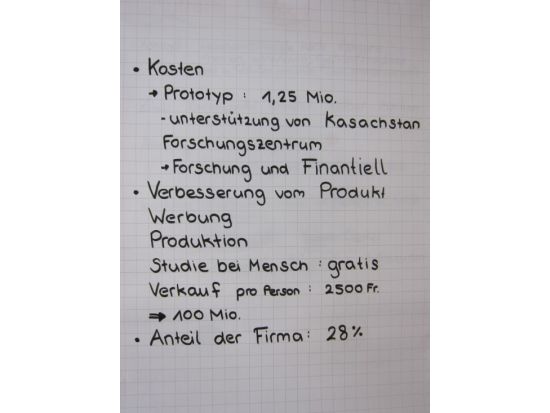 • Kosten
→ Prototyp : 1,25 Mio.
- unterstützung von Kasachstan
Forschungszentrum
→ Forschung und Finantiell
• Verbesserung vom Produkt
Werbung
Produktion
Studie bei Mensch : gratis
Verkauf pro Person : 2500 Fr.
⇒ 100 Mio.
• Anteil der Firma : 28%